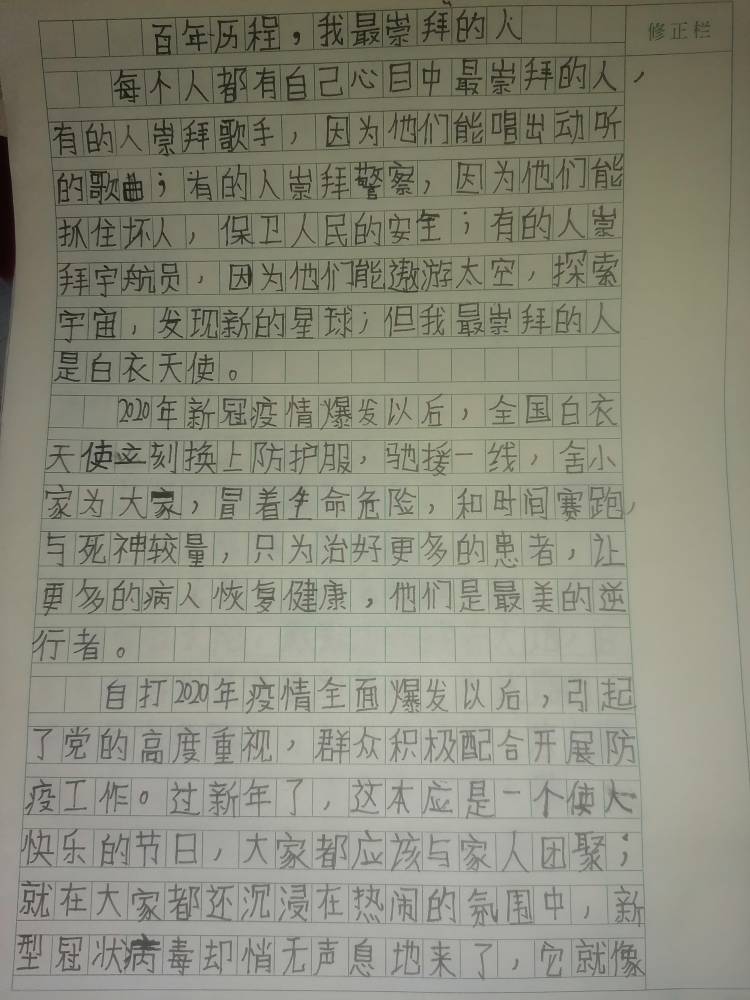 百年历程，我最崇拜的人
修正栏
每个人都有自己心目中最崇拜的人，
有的人崇拜歌手，因为他们能唱出动听
的歌曲；有的人崇拜警察，因为他们能
抓住坏人，保卫人民的安全；有的人崇
拜宇航员，因为他们能遨游太空，探索
宇宙，发现新的星球；但我最崇拜的人
是白衣天使。
2020年新冠疫情爆发以后，全国白衣
天使立刻换上防护服，驰援一线，舍小
家为大家，冒着生命危险，和时间赛跑，
与死神较量，只为治好更多的患者，让
更多的病人恢复健康，他们是最美的逆
行者。
自打2020年疫情全面爆发以后，引起
了党的高度重视，群众积极配合开展防
疫工作。过新年了，这本应是一个使人
快乐的节日，大家都应该与家人团聚；
就在大家都还沉浸在热闹的氛围中，新
型冠状病毒却悄无声息地来了，它就像